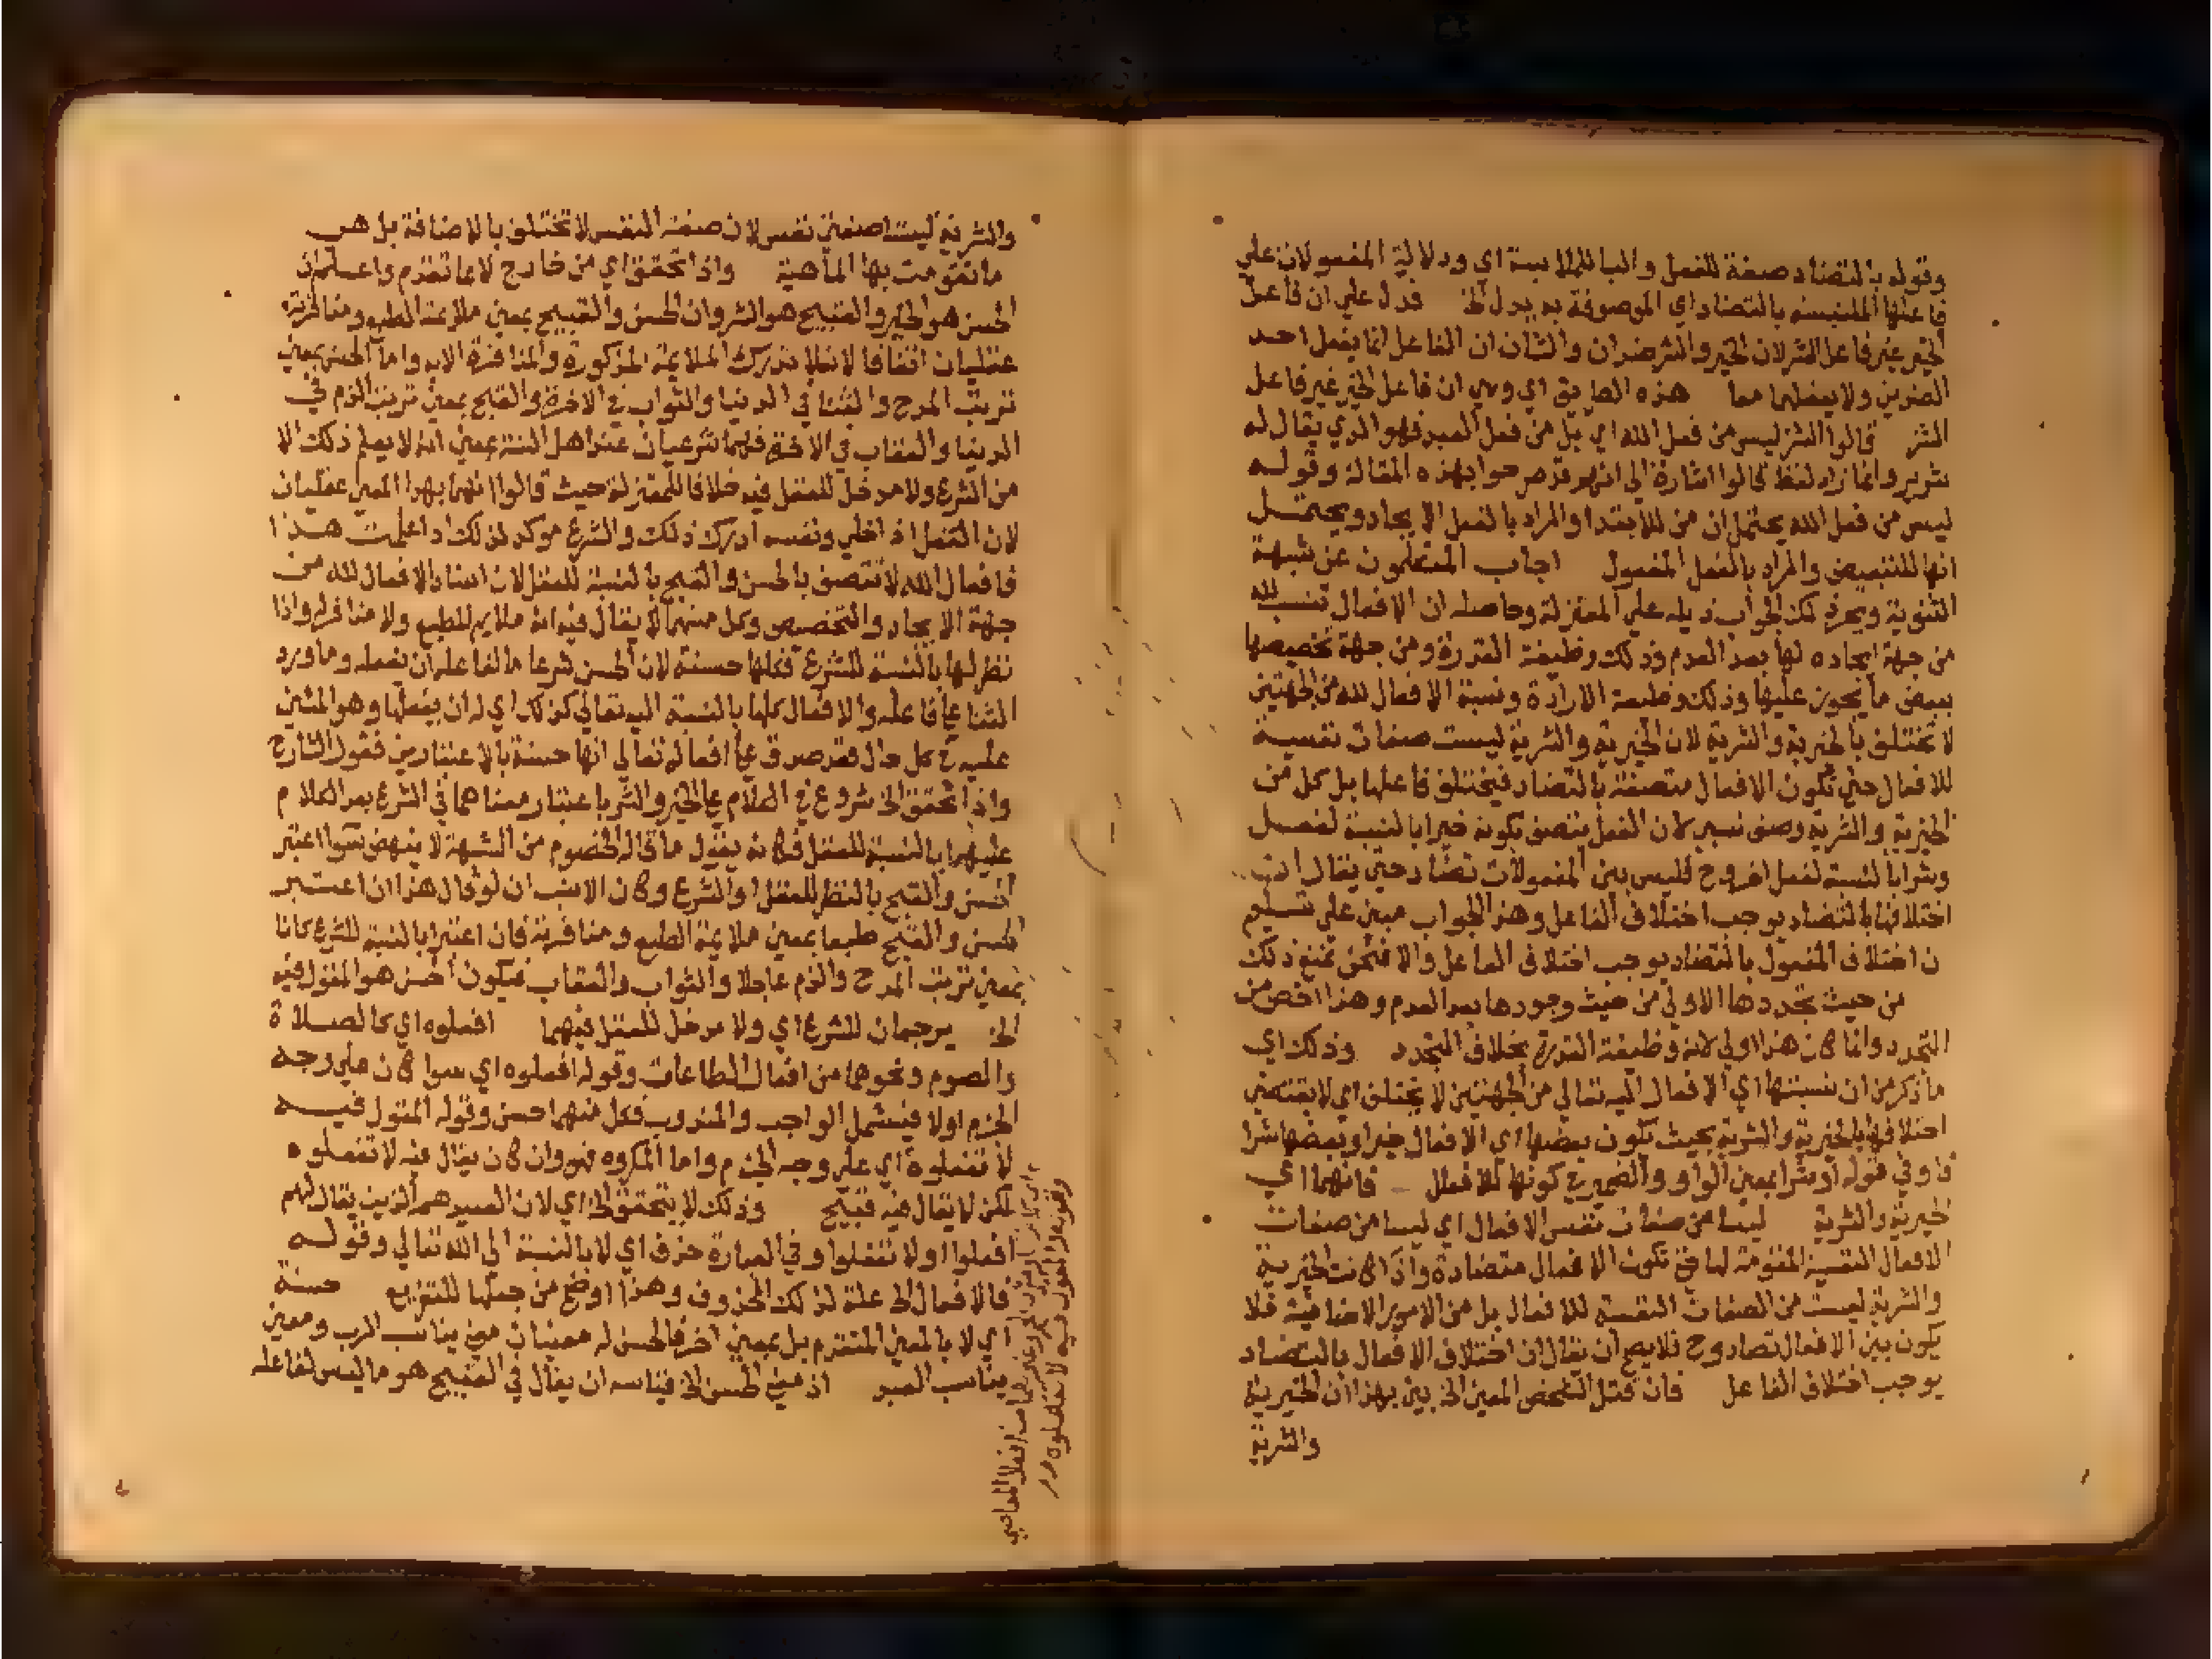 وقوله بالتضاد صفة للفعل والبا للملابسة اي ودلالية المفعولان علي
فاعلها الملتبسة بالتضاد اي الموصوفة به يدل الخ فدل علي ان فاعل
الخير غير فاعل الشر لان الخير والشر ضدان والشان ان الفاعل انما يفعل احد
الضدين ولا يفعلهما معا هذه الطايق اي وهي ان فاعل الخير غير فاعل
الشر قالوا الشر ليس من فعل الله اي بل من فعل العبد فهو الذي يقال له
شرير وانما زاد لفظ قالوا اشارة الي انهم قد صرحوا بهذه المقالة وقوله
ليس من فعل الله يحتمل ان من للابتدا والمراد بالفعل الايجاد ويحتمل
انها للتبعيض والمراد بالفعل المفعول اجاب المتكلمون عن شبهة
الثنوية ويحرد لك الجواب ذيله علي المعتزلة وحاصله ان الافعال تنسب لله
من جهة ايجاده لها بعد العدم وذلك وظيفة القدرة ومن جهة تخصيصها
ببعض ما يجوز عليها وذلك وظيفة الارادة ونسبة الافعال لله من الجهتين
لا تختلف بالخيرية والشرية لان الخيرية والشرية ليست صفات نفسية
للافعال حتي تكون الافعال متصفة بالتضاد فيختلف فاعلها بل كل من
الخيرية والشرية وصف نسبي لان الفعل يتصف بكونه خيرا بالنسبة لفعل
وشرا بالنسبة لفعل اخر وح فليس بين المفعولات تضاد حتي يقال ان
اختلافها بالتضاد يوجب اختلاف الفاعل وهذا الجواب مبني علي تسليم
ن اختلاف المفعول بالتضاد يوجب اختلاف الفاعل والا فنحن نمنع ذلك
من حيث تجددها الاولي من حيث وجودها بعد العدم وهذا اخص من
التجدد وانما كان هذا اولي لانه وظيفة القدرة بخلاف التجدد وذلك اي
ما ذكر من ان نسبتها اي الافعال اليه تعالي من الجهتين لا يختلف اي لا يقتضي
اختلافها بالخيرية والشرية بحيث تكون بعضها اي الافعال خيرا وبعضها شرا
فاو في قوله او شرا بمعني الواو والضمير في كونها للافعال فانهما اي
الخيرية والشرية ليسا من صفات نفس الافعال اي ليسا من صفات
الافعال النفسية المقومة لها حتي تكون الافعال متضادة واذا كانت الخيرية
والشرية ليست من الصفات النفسية للافعال بل من الامور الاضافية فلا
يكون بين الافعال تضاد وح فلا يصح ان يقال ان اختلاف الافعال بالتضاد
يوجب اختلاف الفاعل فان قتل الشخص المعين الخ بين بهذا ان الخيرية
والشرية
والشرية ليستا صفتي نفس لان صفة النفس لا تختلف بالاضافة بل هي
ما تقومت بها الماهية واذا تحقق اي من خارج لا بما تقدم واعلم ان
الحسن هو الخير والقبيح هو الشر وان الحسن والقبيح بمعني ملاءمة الطبع ومنافرته
عقليان اتفاقا لانه لا يدرك الملايمة المذكورة والمنافرة الا به واما الحسن بمعني
ترتب المدح والثنا في الدنيا والثواب في الاخرة والقبح بمعني ترتب الذم في
الدنيا والعقاب في الاخرة فهما شرعيان عند اهل السنة بمعني انه لا يعلم ذلك الا
من الشرع ولا مدخل للعقل فيه خلافا للمعتزلة حيث قالوا انهما بهذا المعني عقليان
لان العقل اذا خلي ونفسه ادرك ذلك والشرع موكد لذلك اذا علمت هذا
فافعال الله لا تتصف بالحسن والقبح بالنسبة للعقل لان اسناد الافعال لله من
جهة الايجاد والتخصيص وكل منهما لا يقال فيه انه ملايم للطبع ولا منافر له واذا
نظر لها بالنسبة للشرع فكلها حسنة لان الحسن شرعا ما لفاعله ان يفعله وما ورد
الثنا علي فاعله والافعال كلها بالنسبة اليه تعالي كذلك اي له ان يفعلها وهو المثني
عليه في كل حال فقد صدق علي افعاله تعالي انها حسنة بالاعتبارين فقول الشارح
واذا تحقق الخ شروع في الكلام علي الخير والشر باعتبار معناهما في الشرع بعد الكلام
عليهما بالنسبة للعقل فكانه يقول ما قاله الخصوم من الشبهة لا ينهض سوا اعتبر
الحسن والقبح بالنظر للعقل او الشرع وكان الانسب ان لو قال هذا ان اعتبر
الحسن والقبح طبعا بمعني ملايمة الطبع ومنافرته فان اعتبرا بالنسبة للشرع كانا
بمعني ترتب المدح والذم عاجلا والثواب والعقاب فيكون الحسن هو المقول فيه
الخ يرجعان للشرع اي ولا مدخل للعقل فيهما افعلوه اي كالصلاة
والصوم ونحوهما من افعال الطاعات وقوله افعلوه اي سوا كان علي وجه
الجزم اولا فيشمل الواجب والمندوب فكل منهما حسن وقوله المقول فيه
لا تفعلوه اي علي وجه الجزم واما المكروه فهو وان كان يقال فيه لا تفعلوه
لكن لا يقال فيه قبيح وذلك لا يتحقق الخ اي لان العبيد هم الذين يقال لهم
افعلوا اولا تفعلوا وفي العبارة حذف اي لا بالنسبة الي الله تعالي وقوله
فالافعال الخ علة لذلك المحذوف وهذا اوضح من جعلها للتفريع حسنة
اي لا بالمعني المتقدم بل بمعني اخر فالحسن له معنيان معني يناسب الرب ومعني
يناسب العبد اذ معني الحسن الخ قياسه ان يقال في القبيح هو ما ليس لفاعله
وقوله المقول فيه لا تفعلوه